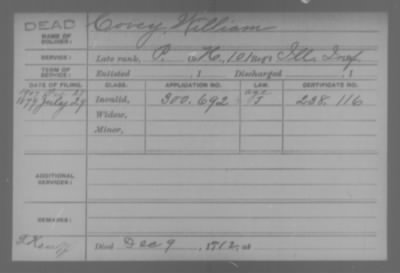 DEAD
NAME OF SOLDIER: Covey, William
SERVICE: Late rank, P. Co. H, 101 Reg't Ill. Inf.
TERM OF SERVICE: Enlisted , 1 Discharged , 1
DATE OF FILING. CLASS. APPLICATION NO. LAW. CERTIFICATE NO.
1879 July 29 Invalid, 300.692 238.116
Widow,
Minor,
ADDITIONAL SERVICES:
REMARKS:
Died Dec 9, 1912, at